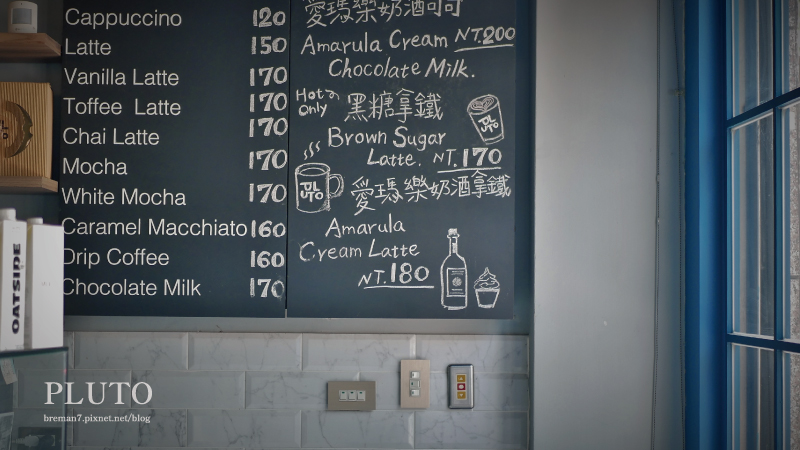 Cappuccino 120
Latte 150
Vanilla Latte 170
Toffee Latte 170
Chai Latte 170
Mocha 170
White Mocha 170
Caramel Macchiato 160
Drip Coffee 160
Chocolate Milk 170
愛瑪樂奶酒可可
Amarula Cream NT.200
Chocolate Milk.
Hot Only
黑糖拿鐵
Brown Sugar
Latte. NT.170
PLUTO
PLUTO
愛瑪樂奶酒拿鐵
Amarula
Cream Latte
NT.180
OATSIDE
PLUTO
breman7.pixnet.net/blog